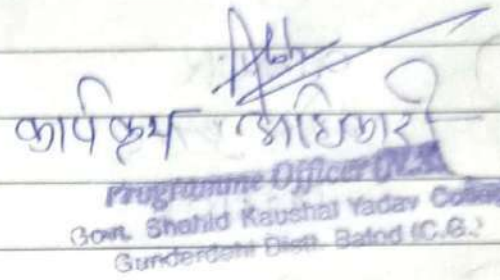 कार्यक्रम अधिकारी
Programme Officer
Govt. Shahid Kaushal Yadav College
Gunderdehi Distt. Balod (C.G.)